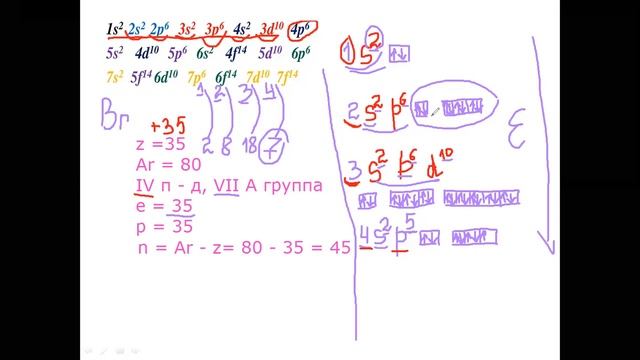 1s² 2s² 2p⁶ 3s² 3p⁶ 4s² 3d¹⁰ 4p⁶
5s² 4d¹⁰ 5p⁶ 6s² 4f¹⁴ 5d¹⁰ 6p⁶
7s² 5f¹⁴ 6d¹⁰ 7p⁶ 6f¹⁴ 7d¹⁰ 7f¹⁴
Br +35 1 2 3 4
2 8 18 7
z =35
Ar = 80
IV п - д, VII А группа
e = 35
p = 35
n = Ar - z= 80 - 35 = 45
1s²
2s²p⁶
3s²p⁶d¹⁰
4s²p⁵
E